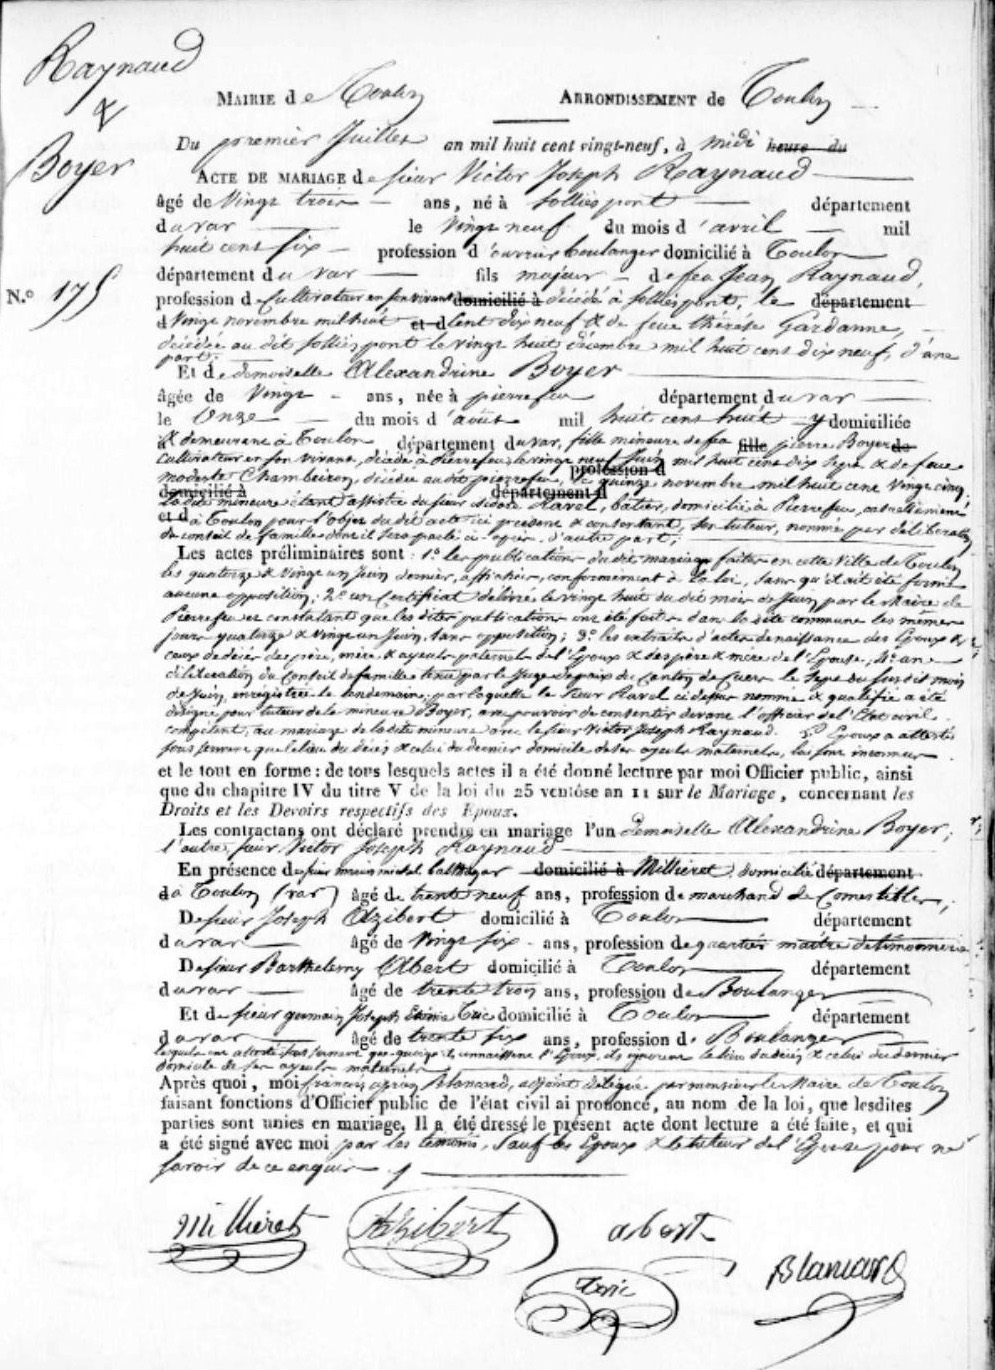 Raynaud
&
Boyer
N.° 175
MAIRIE de Toulon ARRONDISSEMENT de Toulon
Du premier Juillet an mil huit cent vingt-neuf, à midi heure du
ACTE DE MARIAGE de sieur Victor Joseph Raynaud
âgé de Vingt trois ans, né à Solliès pont département
du var le Vingt neuf du mois d'avril mil
huit cent six profession d'ouvrier boulanger domicilié à Toulon
département du var fils majeur de feu Jean Raynaud,
profession de Cultivateur en son vivant domicilié à décédé à Solliès pont, le département
d Vingt novembre mil huit et d Cent dix neuf & de feue thérése Gardanne,
décédée au dit Solliès pont le vingt huit décembre mil huit cent dix neuf, d'une
part.
Et de demoiselle Alexandrine Boyer
âgée de Vingt ans, née à pierrefeu département du var
le Onze du mois d'août mil huit cent huit y domiciliée
& demeurant à Toulon département du var, fille mineure de feu fille pierre Boyer de
Cultivateur en son vivant, décédé à Pierrefeu, le vingt neuf Juin profession d mil huit cent dix sept & de feue
modeste Chambeiron, décédée au dit pierrefeu, le quinze novembre mil huit cent vingt cinq,
domicilié à département d
La dite mineure étant assistée du sieur Ravel, batier, domicilié à Pierrefeu, actuellement
et d à Toulon pour l'objet du dit acte ici présent & consentant, son tuteur, nommé par délibération
du conseil de famille dont il sera parlé ci-après, d'autre part;
Les actes préliminaires sont : 1.° les publications du dit mariage faites en cette Ville de Toulon
les quatorze & Vingt un Juin dernier, affichées, conformément à la loi, sans qu'il ait été formé
aucune opposition; 2.° un Certificat délivré le vingt huit du dit mois de Juin par le Maire de
Pierrefeu et constatant que les dites publications ont été faites dans la dite commune les mêmes
jours quatorze & vingt un Juin, sans opposition; 3.° les extraits d'actes de naissance des Epoux &
ceux de décès des père, mère & ayeuls paternels de l'Epoux & des père & mère de l'Epouse; 4.° une
délibération du Conseil de famille tenu par le Juge de paix du Canton de Cuers le Sept du susdit mois
de Juin, enregistrée le lendemain, par laquelle le sieur Ravel ci-dessus nommé & qualifié a été
désigné pour tuteur de la mineure Boyer, avec pouvoir de consentir devant l'officier de l'Etat civil
compétent, au mariage de la dite mineure avec le sieur Victor Joseph Raynaud. L'Epoux a attesté
sous serment que le lieu du décès & celui du dernier domicile de ses ayeuls maternels, lui sont inconnus
et le tout en forme : de tous lesquels actes il a été donné lecture par moi Officier public, ainsi
que du chapitre IV du titre V de la loi du 25 ventôse an 11 sur le Mariage, concernant les
Droits et les Devoirs respectifs des Epoux.
Les contractans ont déclaré prendre en mariage l'un Demoiselle Alexandrine Boyer;
l'autre, sieur Victor Joseph Raynaud
En présence de sieur michel balthazar domicilié à Millieret, domicilié département
d à Toulon (var) âgé de trente neuf ans, profession de marchand de Comestibles,
De sieur Joseph Azibert domicilié à Toulon département
du var âgé de Vingt six ans, profession de quartier maître de timonnerie
De sieur Barthelemy Abert domicilié à Toulon département
du var âgé de trente trois ans, profession de Boulanger
Et de sieur germain Joseph Etienne Teric domicilié à Toulon département
du var âgé de trente six ans, profession de Boulanger
lesquels ont attesté sous serment que quoiqu'ils connaissent l'Epoux, ils ignorent le lieu du décès & celui du dernier
domicile de ses ayeuls maternels
Après quoi, moi françois Blancard, adjoint délégué par monsieur le Maire de Toulon
faisant fonctions d'Officier public de l'état civil ai prononcé, au nom de la loi, que lesdites
parties sont unies en mariage. Il a été dressé le présent acte dont lecture a été faite, et qui
a été signé avec moi par les témoins, Sauf les Epoux & le tuteur de l'Epouse pour ne
savoir de ce enquis.
Millieret Azibert abert
Teric Blancard